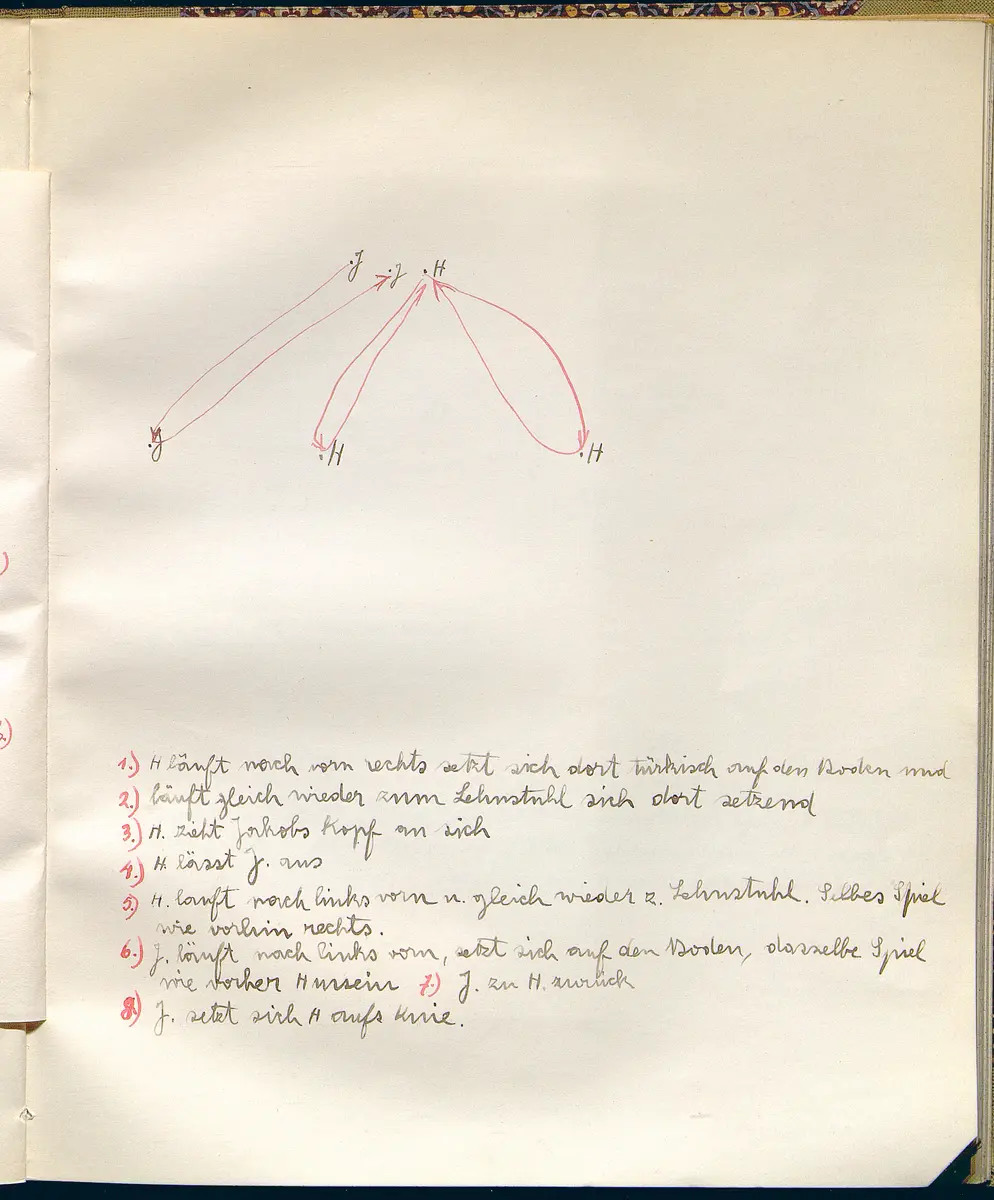 J
J H
J
H
H
)
2)
1.) H läuft nach vorn rechts setzt sich dort türkisch auf den Boden und
2.) läuft gleich wieder zum Lehnstuhl sich dort setzend
3.) H. zieht Jakobs Kopf an sich
4.) H. lässt J. aus
5.) H. lauft nach links vorn u. gleich wieder z. Lehnstuhl. Selbes Spiel
wie vorhin rechts.
6.) J. läuft nach links vorn, setzt sich auf den Boden, dasselbe Spiel
wie vorher Hussein 7.) J. zu H. zurück
8.) J. setzt sich H aufs Knie.